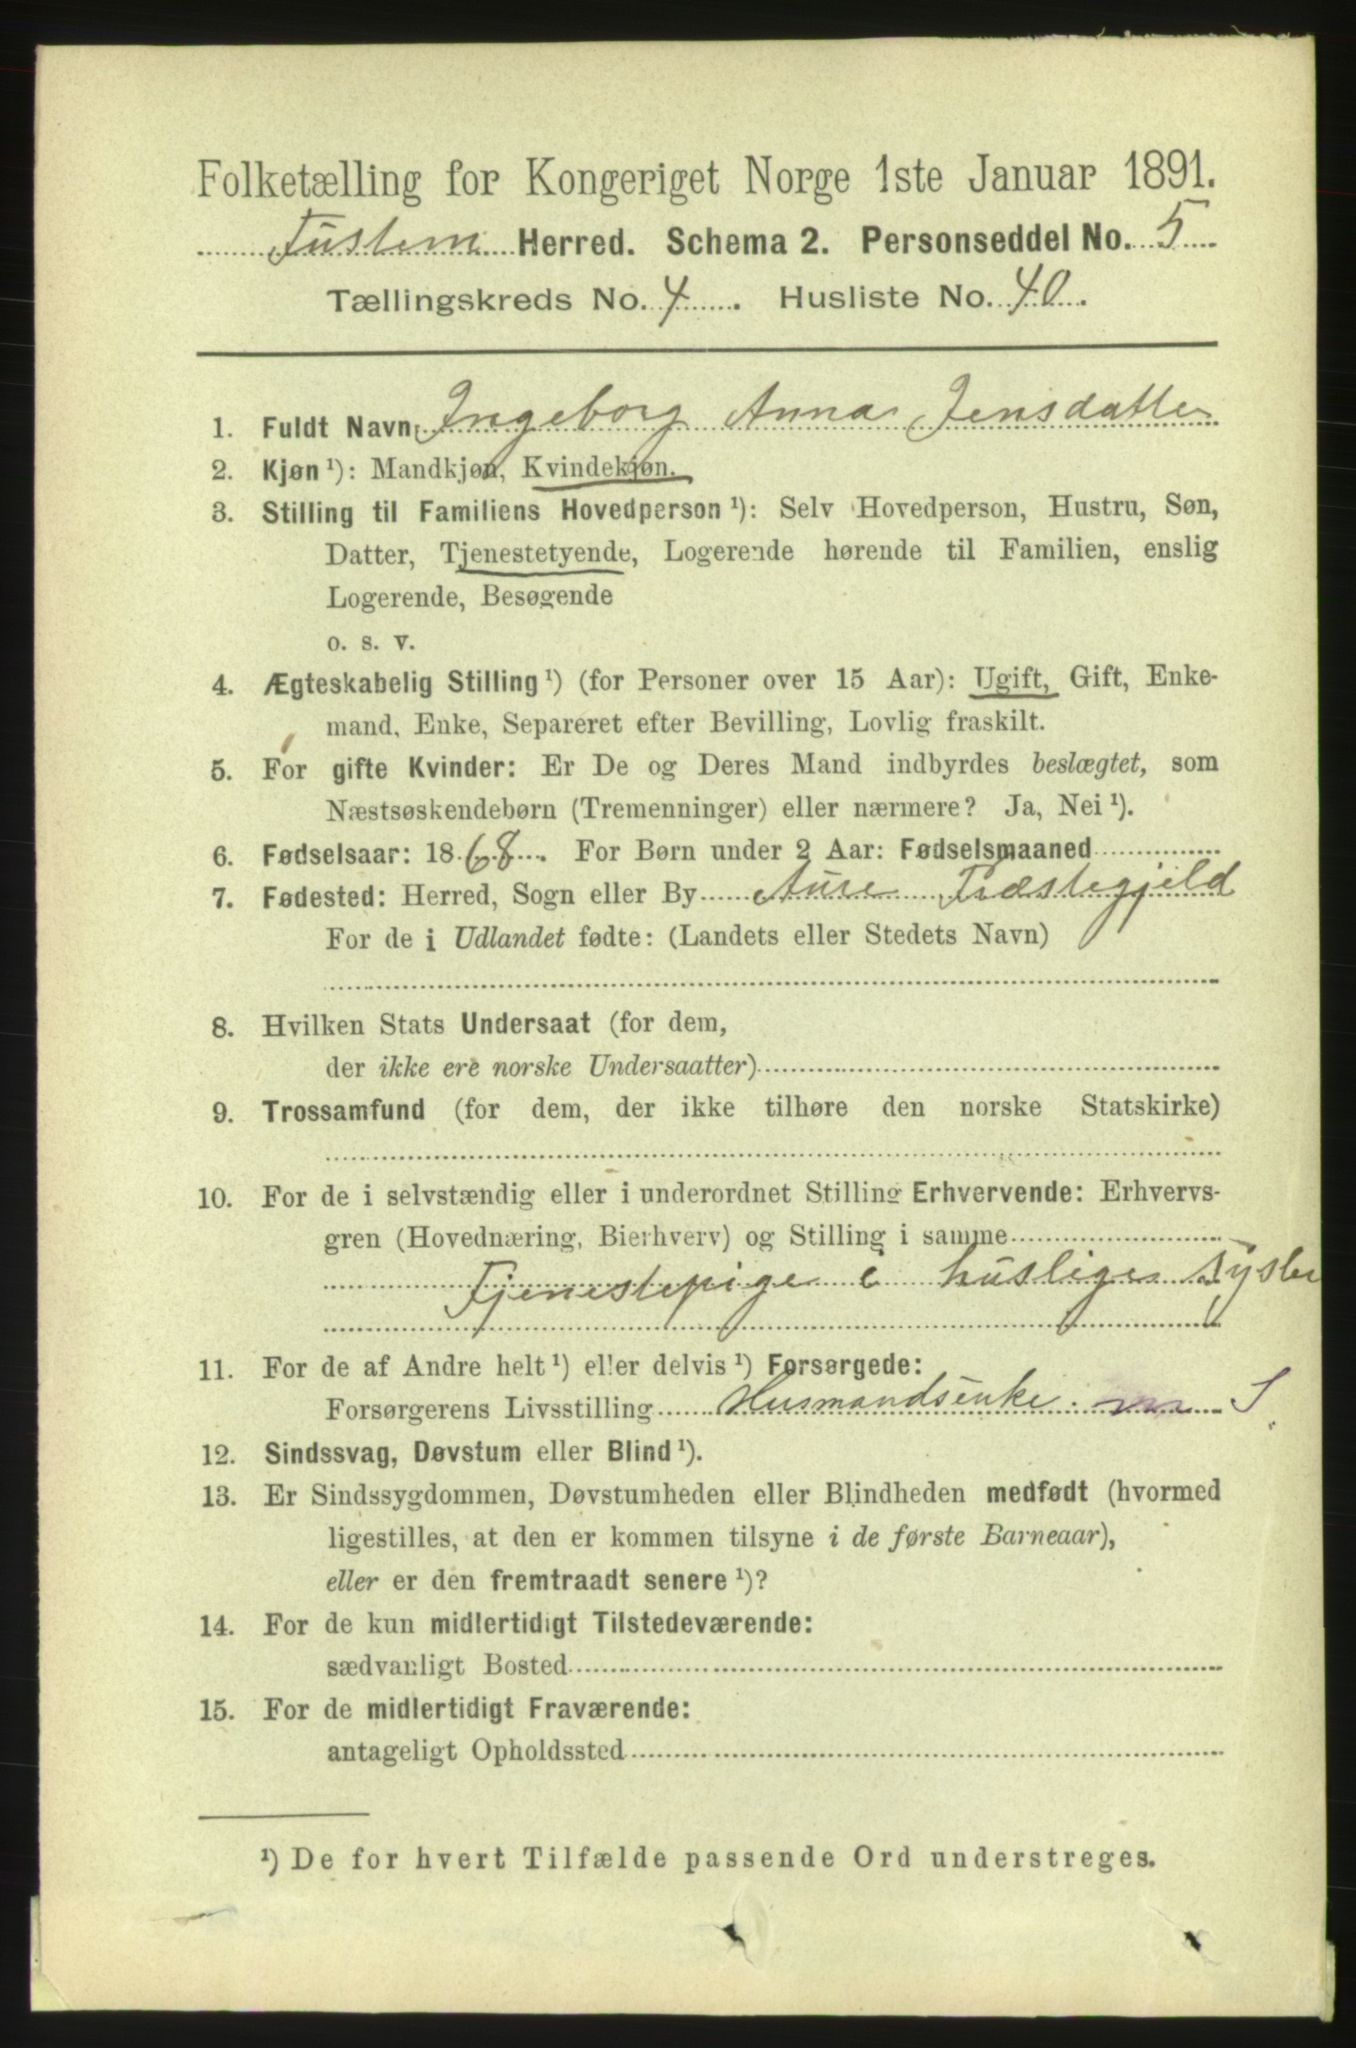 Folketælling for Kongeriget Norge 1ste Januar 1891.
Tustern Herred. Schema 2. Personseddel No. 5
Tællingskreds No. 4. Husliste No. 40.
1. Fuldt Navn Ingeborg Anna Jensdatter
2. Kjøn ¹): Mandkjøn, Kvindekjøn.
3. Stilling til Familiens Hovedperson ¹): Selv Hovedperson, Hustru, Søn,
Datter, Tjenestetyende, Logerende hørende til Familien, enslig
Logerende, Besøgende
o. s. v.
4. Ægteskabelig Stilling ¹) (for Personer over 15 Aar): Ugift, Gift, Enke-
mand, Enke, Separeret efter Bevilling, Lovlig fraskilt.
5. For gifte Kvinder: Er De og Deres Mand indbyrdes beslægtet, som
Næstsøskendebørn (Tremenninger) eller nærmere? Ja, Nei ¹).
6. Fødselsaar: 1868. For Børn under 2 Aar: Fødselsmaaned
7. Fødested: Herred, Sogn eller By Aure Præstegjeld
For de i Udlandet fødte: (Landets eller Stedets Navn)
8. Hvilken Stats Undersaat (for dem,
der ikke ere norske Undersaatter)
9. Trossamfund (for dem, der ikke tilhøre den norske Statskirke)
10. For de i selvstændig eller i underordnet Stilling Erhvervende: Erhvervs-
gren (Hovednæring, Bierhverv) og Stilling i samme
Tjenestepige i huslige Sysler
11. For de af Andre helt ¹) eller delvis ¹) Forsørgede:
Forsørgerens Livsstilling Husmandsenke. m S.
12. Sindssvag, Døvstum eller Blind ¹).
13. Er Sindssygdommen, Døvstumheden eller Blindheden medfødt (hvormed
ligestilles, at den er kommen tilsyne i de første Barneaar),
eller er den fremtraadt senere ¹)?
14. For de kun midlertidigt Tilstedeværende:
sædvanligt Bosted
15. For de midlertidigt Fraværende:
antageligt Opholdssted
¹) De for hvert Tilfælde passende Ord understreges.